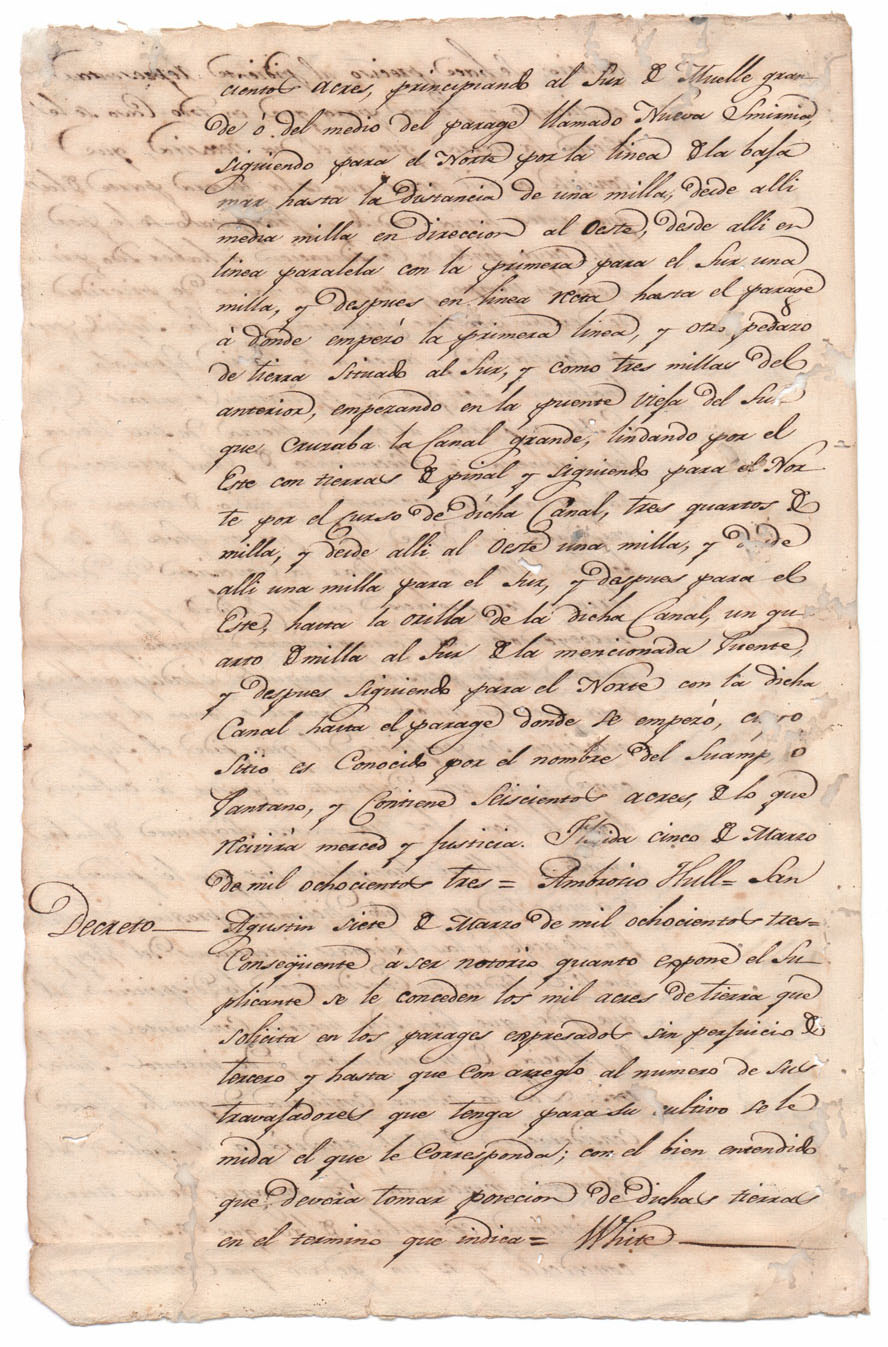 cientos acres, principiando al Sur de Muelle gran-
de ó del medio del parage llamado Nueva Smirnia,
siguiendo para el Norte por la linea de la bafa
mar hasta la distancia de una milla, desde alli
media milla en direccion al Oeste, desde alli en
linea paralela con la primera para el Sur una
milla, y despues en linea recta hasta el parage
à donde empezó la primera linea, y otro pedazo
de tierra situado al Sur, y como tres millas del
anterior, empezando en la puente viefa del Sur
que cruzaba la Canal grande, lindando por el
Este con tierras de pinal y siguiendo para el Nor
te por el curso de dicha Canal, tres quartos de
milla, y desde alli al Oeste una milla, y desde
alli una milla para el Sur, y despues para el
Este, hasta la orilla de la dicha Canal, un qu
arto de milla al Sur de la mencionada Puente,
y despues siguiendo para el Norte con la dicha
Canal hasta el parage donde se empezó, cuyo
Sitio es Conocido por el nombre del Suamp, o
Pantano, y Contiene Seiscientos acres, de lo que
recivirà merced y Justicia. Florida cinco de Marzo
de mil ochocientos tres = Ambrosio Hull = San
Decreto Agustin siete de Marzo de mil ochocientos tres =
Conseqüente à ser notorio quanto expone el Su-
plicante se le conceden los mil acres de tierra que
solicita en los parages expresados sin perjuicio de
tercero y hasta que con arreglo al numero de sus
travajadores que tenga para su cultivo se le
mida el que le Corresponda; con el bien entendido
que deverà tomar posecion de dichas tierras
en el termino que indica = White